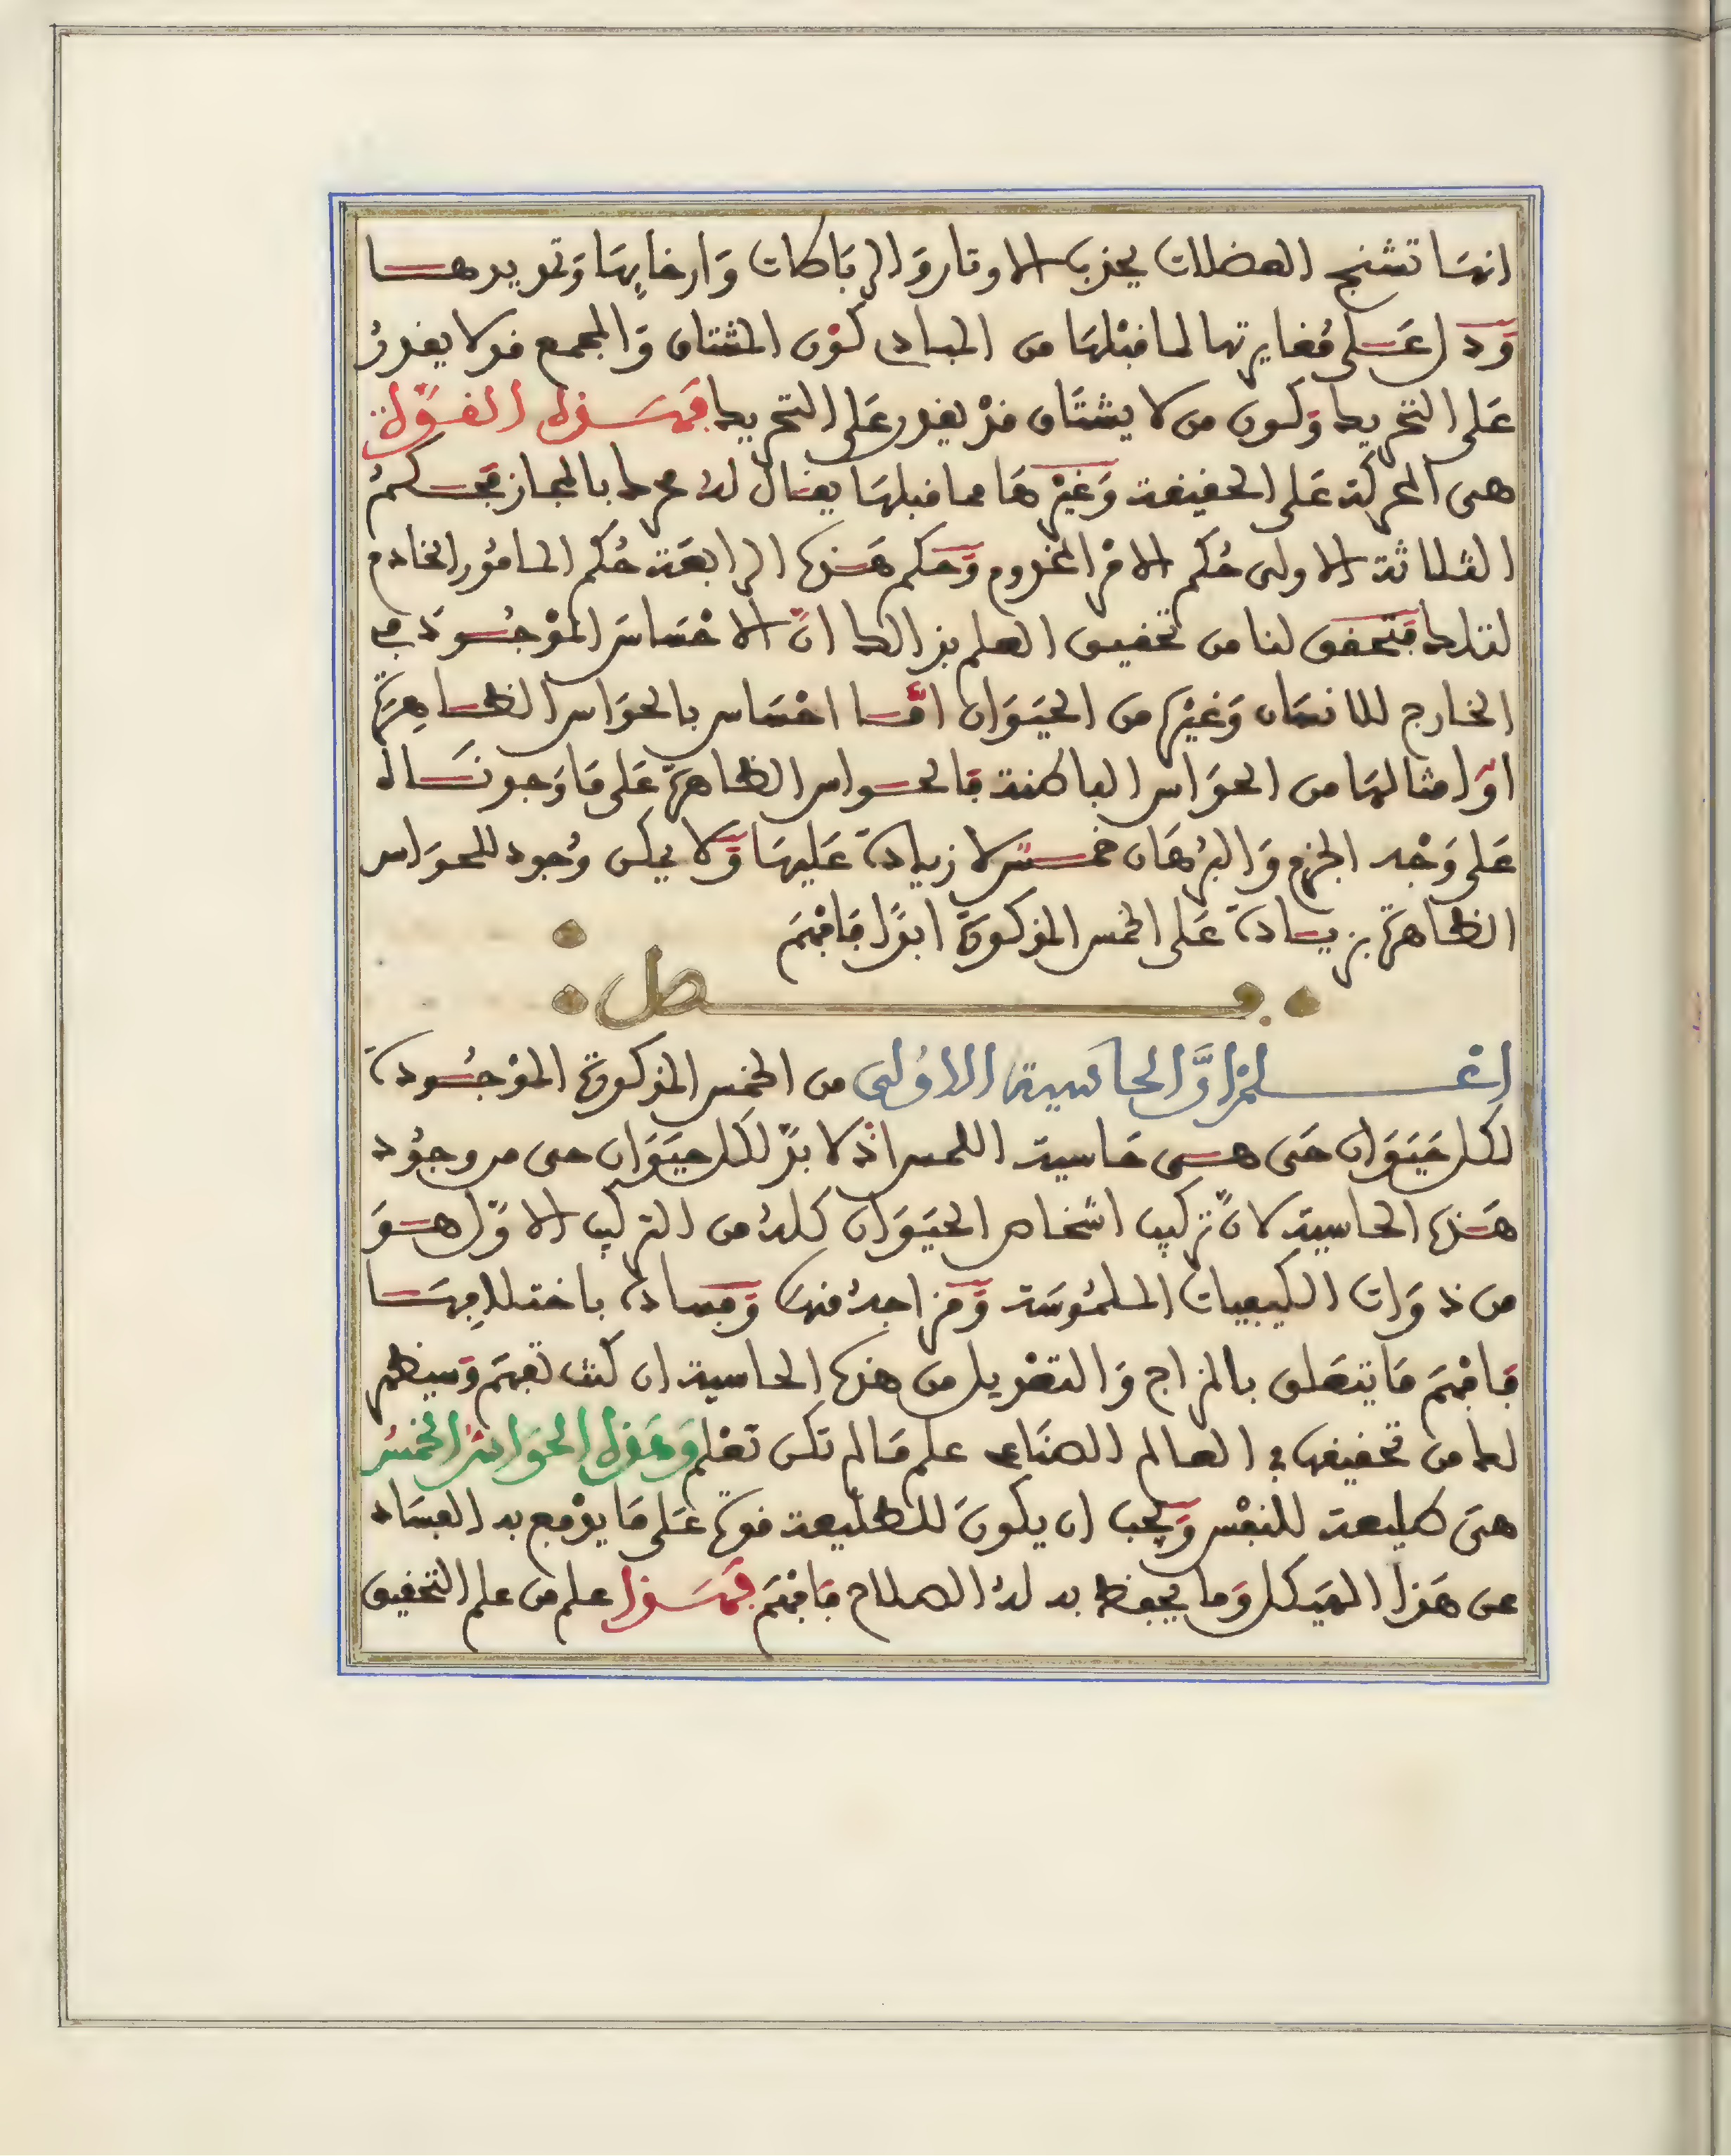 انها تشنج العضلات بجذب الاوتار والرباطات وارخايها وتمديدها
ودل على مغايرتها لما قبلها من المبادي كون المشتاق والمجمع قد لا يقدر
على التحريك وكون من لا يشتاق قد يقدر على التحريك فهذه القوة
هي المحركة على الحقيقة وغيرها مما قبلها يقال له محرك بالمجاز فحكم
الثلاثة الاولى حكم الامر المخدوم وحكم هذه الرابعة حكم المامور الخادم
لتلك فتحقق لنا من تحقيق العلم بذالك ان الاحساس الموجود في
الخارج للانسان وغيره من الحيوان اما احساس بالحواس الظاهرة
او امثالها من الحواس الباطنة فالحواس الظاهرة على ما وجدناه
على وجه الجزم والبرهان خمس لا زيادة عليها ولا يمكن وجود للحواس
الظاهرة بزيادة على الخمس المذكورة ابدا فافهم
فصل
اعلم ان الحاسية الاولى من الخمس المذكورة الموجودة
لكل حيوان حي هي حاسية اللمس اذ لا بد لكل حيوان حي من وجود
هذه الحاسية لان تركيب اشخاص الحيوان كله من التركيب الاول هو
من ذوات الكيفيات الملموسة ومزاجه منها وفساده باختلافها
فافهم ما يتعلق بالمزاج والتعديل من هذه الحاسية ان كنت تفهم وسيظهر
لك من تحقيقه في العالم الصناعي علم ما لم تكن تعلم وهذه الحواس الخمس
هي طليعة للنفس ويجب ان يكون للطليعة قوة على ما يوقع به الفساد
عن هذا الهيكل وما يحفظ به له الصلاح فافهم فهذا علم من علم التحقيق